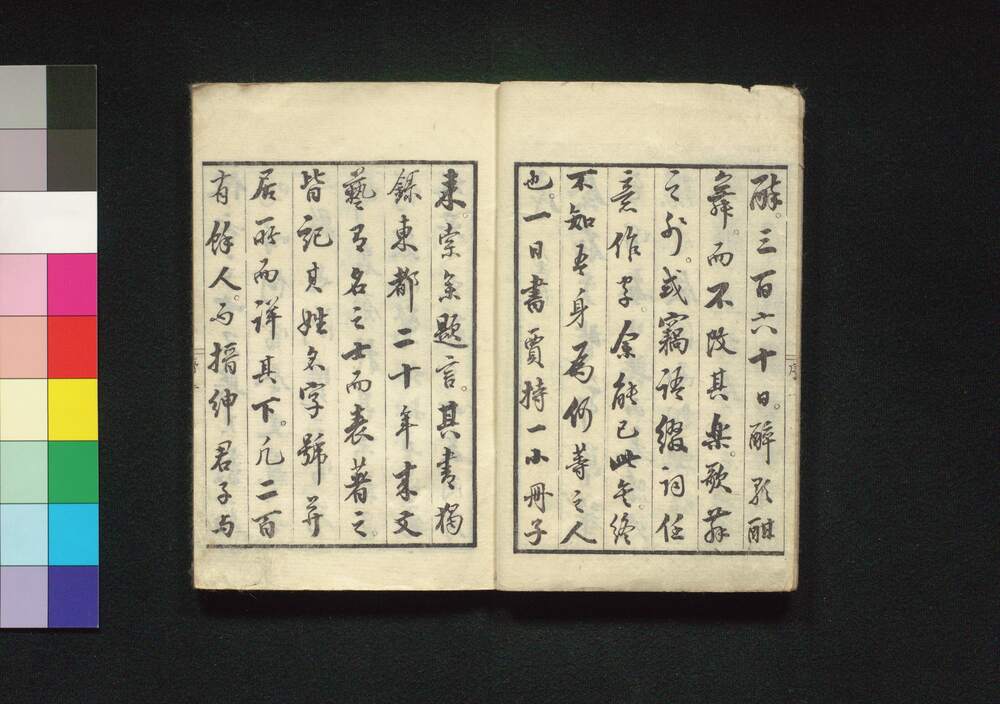 醉。三百六十日。醉歌酣
舞。而不改其樂。歌舞
之外。或竊語綴詞任
意作字。余能已此矣。終
不知吾身為何等之人
也。一日書賈持一小冊子
来。索余題言。其書摘
錄東都二十年来文
藝有名之士而表著之。
皆記其姓名字號并
居所而詳其下。凡二百
有餘人。而搢紳君子与
序